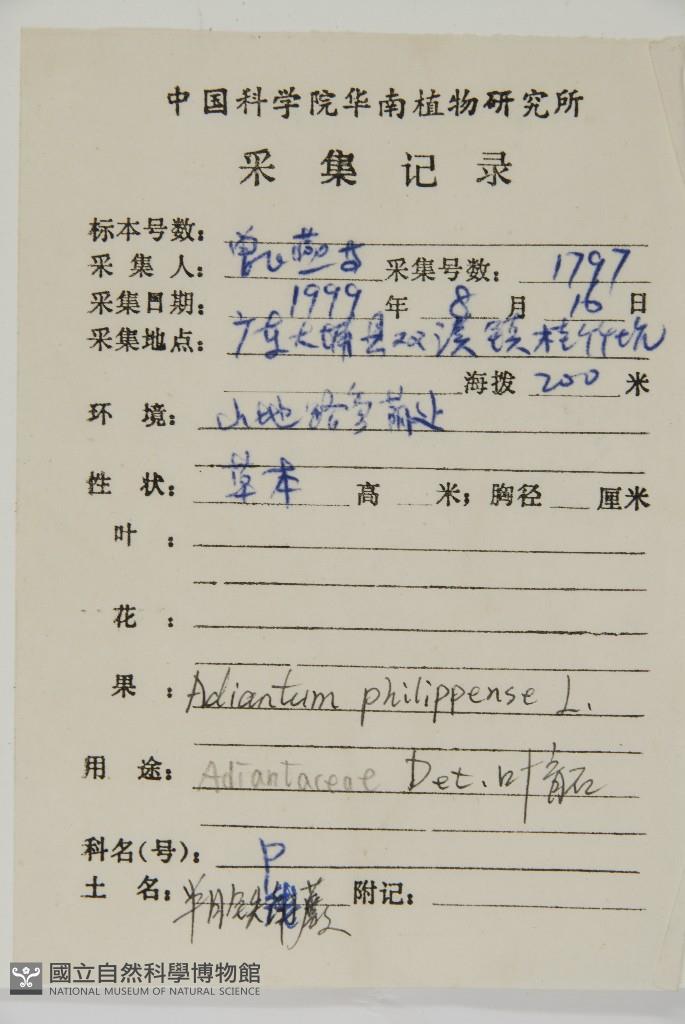 中国科学院华南植物研究所
采集记录
标本号数:
采集人: 曾 采集号数: 1797
采集日期: 1999 年 8 月 16 日
采集地点: 广东大埔县双溪镇桂竹坑
海拨 200 米
环境: 山地路旁荫处
性状: 草本 高 米; 胸径 厘米
叶:
花:
果: Adiantum philippense L.
用途: Adiantaceae Det. 叶育石
科名(号): P
土名: 半月铁线蕨 附记:
國立自然科學博物館
NATIONAL MUSEUM OF NATURAL SCIENCE